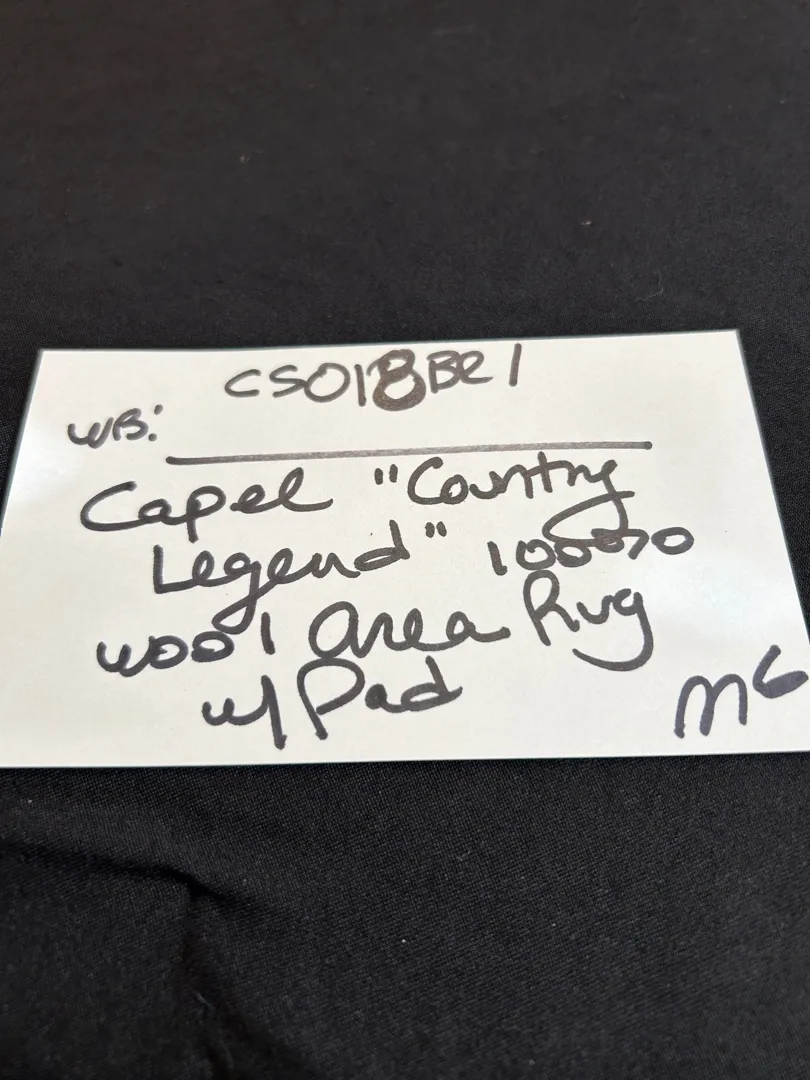 CS018BR1
WB:
Capel "Country
Legend" 100%
wool area Rug
w/ Pad
MG